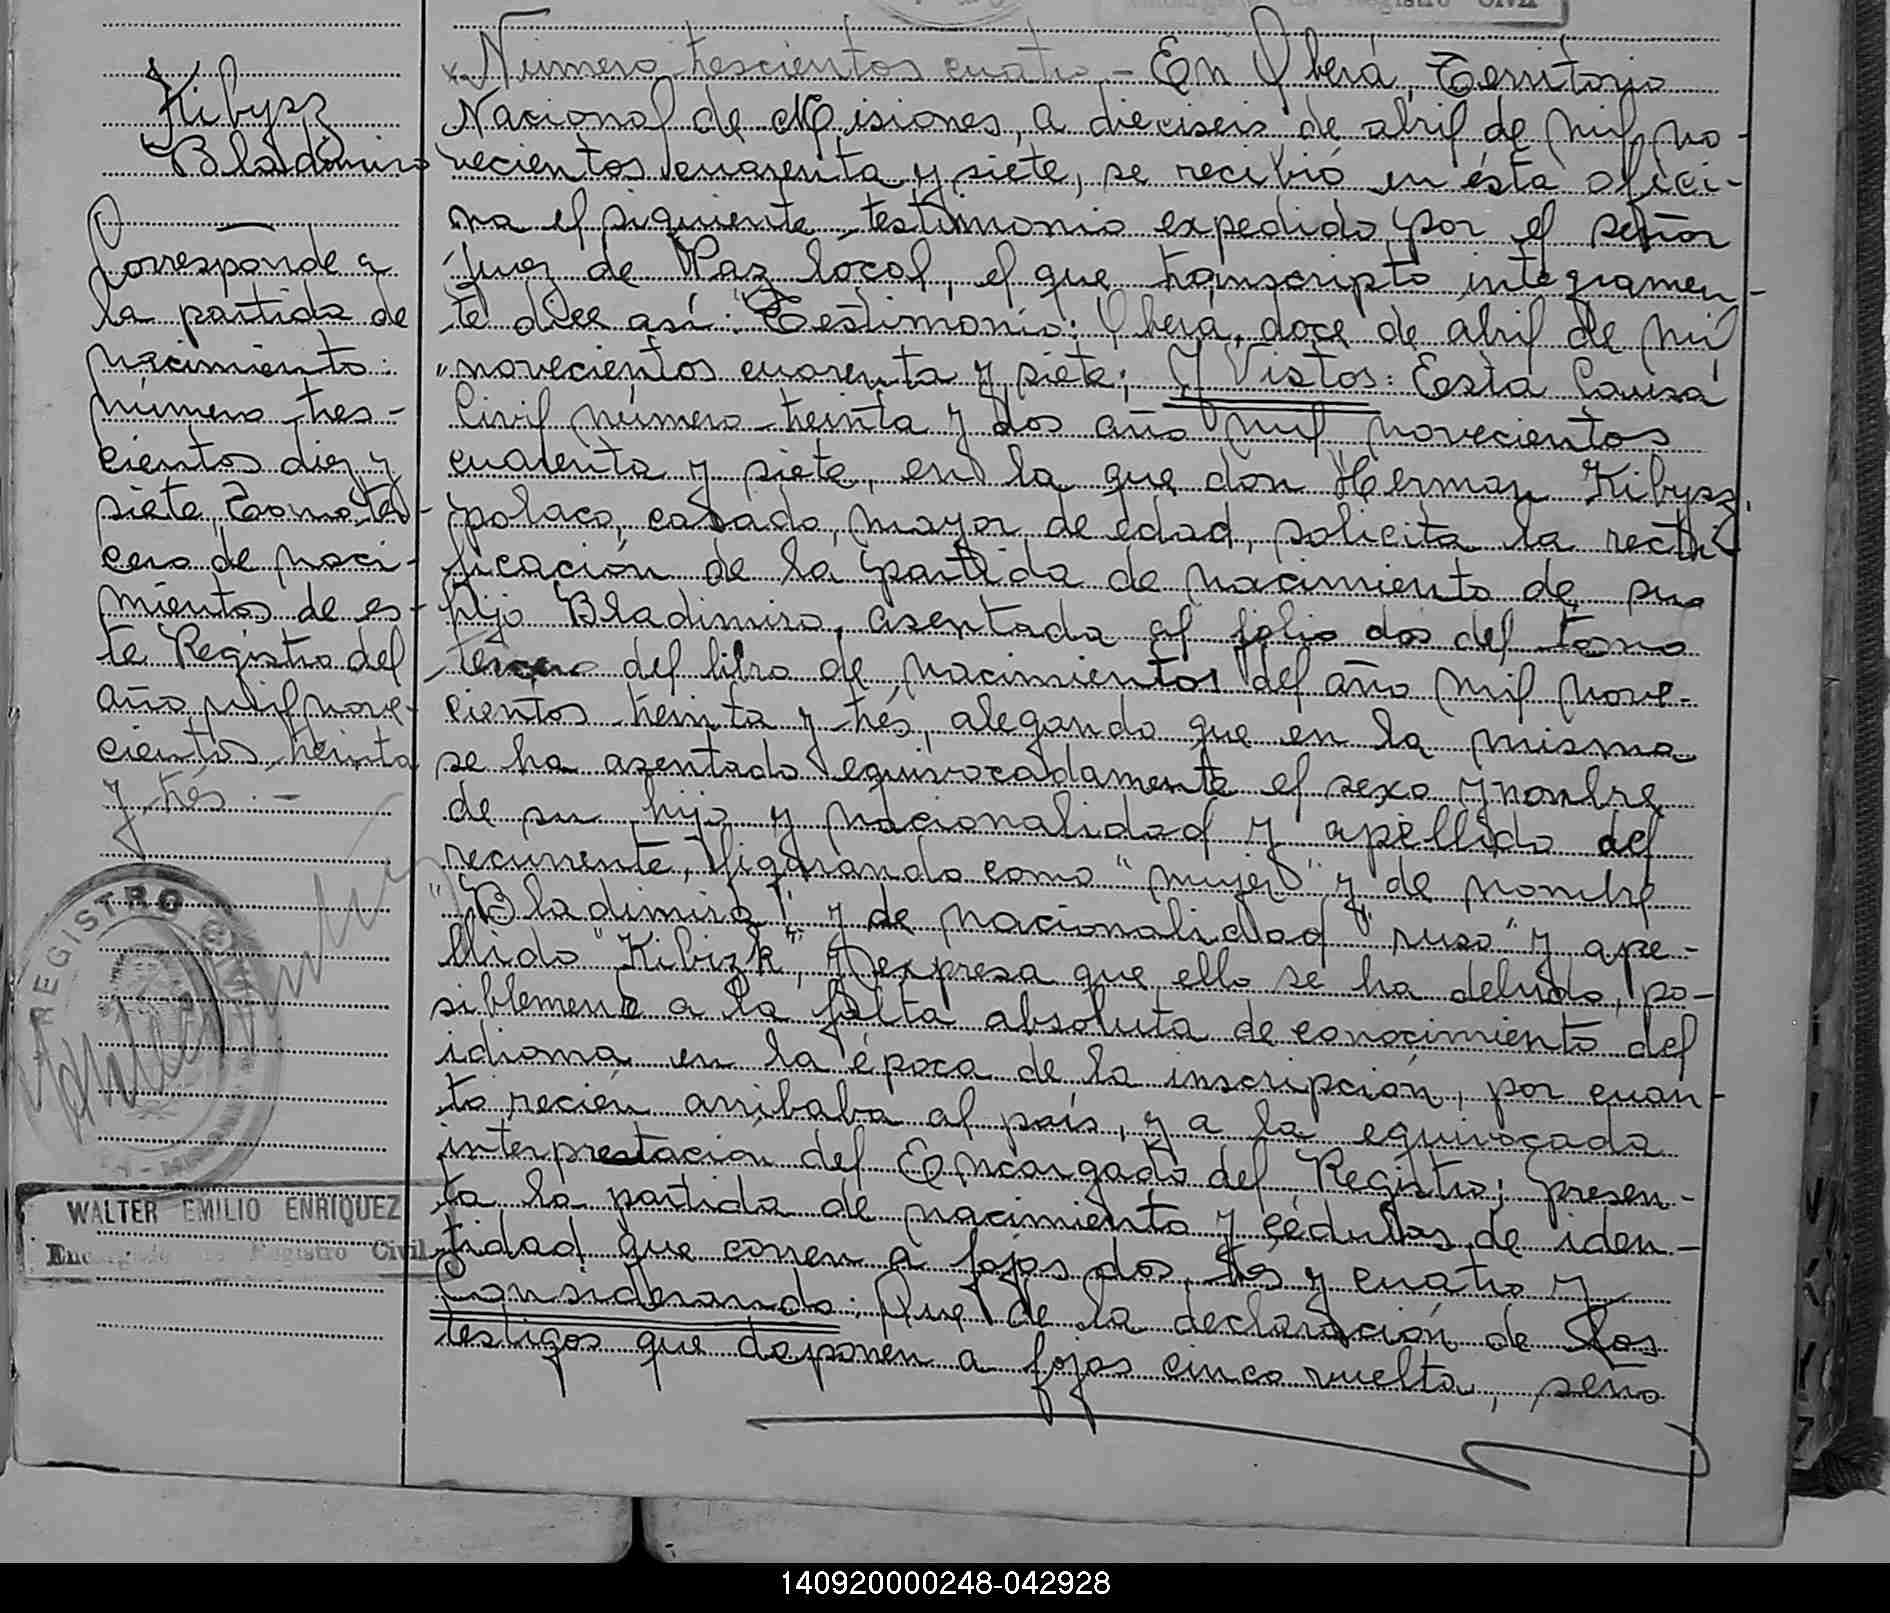 Encargado de Registro Civil
Kibysz
Bladimiro
Corresponde a
la partida de
nacimiento:
número tres-
cientos diez y
siete, Tomo ter-
cero de naci-
mientos de es-
te Registro del
año mil nove-
cientos treinta
y trés.-
REGISTRO CIVIL
WALTER EMILIO ENRIQUEZ
Encargado de Registro Civil
Número trescientos cuatro - En Oberá, Territorio
Nacional de Misiones, a dieciseis de abril de mil no-
vecientos cuarenta y siete, se recibió en ésta ofici-
na el siguiente testimonio expedido por el señor
Juez de Paz local, el que transcripto integramen-
te dice así: "Testimonio: Oberá, doce de abril de mil
"novecientos cuarenta y siete; Y Vistos: Esta Causa
Civil número treinta y dos año mil novecientos
cuarenta y siete, en la que don Herman Kibysz,
polaco, casado, mayor de edad, solicita la recti-
ficación de la partida de nacimiento de su
hijo Bladimiro, asentada al folio dos del tomo
tercero del libro de nacimientos del año mil nove-
cientos treinta y trés, alegando que en la misma
se ha asentado equivocadamente el sexo y nombre
de su hijo y nacionalidad y apellido del
recurrente, figurando como "mujer" y de nombre
"Bladimira" y de nacionalidad "ruso" y ape-
llido "Kibizk", y expresa que ello se ha debido, po-
siblemente a la falta absoluta de conocimiento del
idioma en la época de la inscripción, por cuan-
to recién arribaba al país, y a la equivocada
interpretación del Encargado del Registro; presen-
ta la partida de nacimiento y cédulas de iden-
tidad que corren a fojas dos, trés y cuatro y
Considerando: Que de la declaración de los
testigos que deponen a fojas cinco vuelta, seño
140920000248-042928